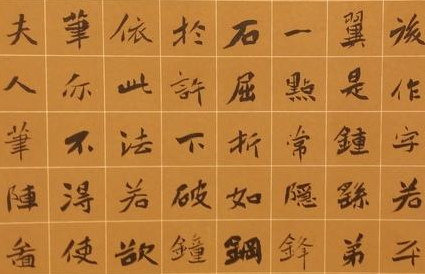 該作字若平
翼是鍾繇弟
一點常隱鋒
石屈折如鋼
於許下破鐘
依此法若欲
筆亦不得使
夫人筆陣圖